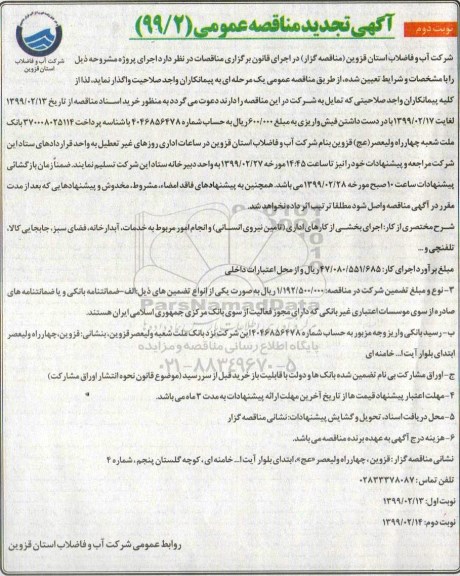 نوبت دوم
آگهی تجدید مناقصه عمومی (۹۹/۲)
شرکت آب و فاضلاب
استان قزوین
شرکت آب و فاضلاب استان قزوین (مناقصه گزار) در اجرای قانون برگزاری مناقصات در نظر دارد اجرای پروژه مشروحه ذیل
را با مشخصات و شرایط تعیین شده، از طریق مناقصه عمومی یک مرحله ای به پیمانکاران واجد صلاحیت واگذار نماید. لذا از
کلیه پیمانکاران واجد صلاحیتی که تمایل به شرکت در این مناقصه را دارند دعوت می گردد به منظور خرید اسناد مناقصه از تاریخ ۱۳۹۹/۰۲/۱۳
لغایت ۱۳۹۹/۰۲/۱۷ با در دست داشتن فیش واریزی به مبلغ ۶۰۰/۰۰۰ ریال به حساب شماره ۴۰۴۶۸۵۶۴۷۸ با شناسه پرداخت ۳۷۰۰۰۸۰۲۵۱۱۴ بانک
ملت شعبه چهارراه ولیعصر (عج) قزوین بنام شرکت آب و فاضلاب استان قزوین در ساعات اداری روزهای غیر تعطیل به واحد قرار دادهای ستاد این
شرکت مراجعه و پیشنهادات خود را نیز تا ساعت ۱۴:۴۵ مورخه ۱۳۹۹/۰۲/۲۷ به واحد دبیر خانه ستاد این شرکت تسلیم نمایند. ضمناً زمان بازگشائی
پیشنهادات ساعت ۱۰ صبح مورخه ۱۳۹۹/۰۲/۲۸ می باشد. همچنین به پیشنهادهای فاقد امضاء، مشروط، مخدوش و پیشنهادهایی که بعد از مدت
مقرر در آگهی مناقصه واصل شود مطلقا ترتیب اثر داده نخواهد شد.
شرح مختصری از کار: اجرای بخشی از کارهای اداری (تامین نیروی انسانی) و انجام امور مربوط به خدمات، آبدارخانه، فضای سبز، جابجایی کالا،
تلفنچی و...
مبلغ برآورد اجرای کار: ۴۷/۰۸۰/۵۵۱/۶۸۵ ریال و از محل اعتبارات داخلی
۳- نوع و مبلغ تضمین شرکت در مناقصه: ۱/۱۹۲/۵۰۰/۰۰۰ ریال به صورت یکی از انواع تضمین های ذیل: الف- ضمانتنامه بانکی و یا ضمانتنامه های
صادره از سوی موسسات اعتباری غیر بانکی که دارای مجوز فعالیت از سوی بانک مرکزی جمهوری اسلامی ایران هستند.
ب- رسید بانکی واریز وجه مزبور به حساب شماره ۴۰۴۶۸۵۶۴۷۸ این شرکت نزد بانک ملت شعبه ولیعصر قزوین، بنشانی: قزوین، چهارراه ولیعصر
ابتدای بلوار آیت ا... خامنه ای
ج- اوراق مشارکت بی نام تضمین شده بانک ها و دولت با قابلیت باز خرید قبل از سررسید (موضوع قانون نحوه انتشار اوراق مشارکت)
۴- مهلت اعتبار پیشنهاد قیمت ها از تاریخ آخرین مهلت ارائه پیشنهادات به مدت ۳ ماه می باشد.
۵- محل دریافت اسناد، تحویل و گشایش پیشنهادات: نشانی مناقصه گزار
۶- هزینه درج آگهی به عهده برنده مناقصه می باشد.
نشانی مناقصه گزار: قزوین، چهارراه ولیعصر «عج»، ابتدای بلوار آیت ا... خامنه ای، کوچه گلستان پنجم، شماره ۴
تلفن تماس: ۰۲۸۳۳۳۷۸۰۸۷
نوبت اول: ۱۳۹۹/۰۲/۱۳
نوبت دوم: ۱۳۹۹/۰۲/۱۴
روابط عمومی شرکت آب و فاضلاب استان قزوین
ParsNamadData
پایگاه اطلاع رسانی مناقصه و مزایده
۰۲۱-۸۸۳۴۹۶۷۰-۵